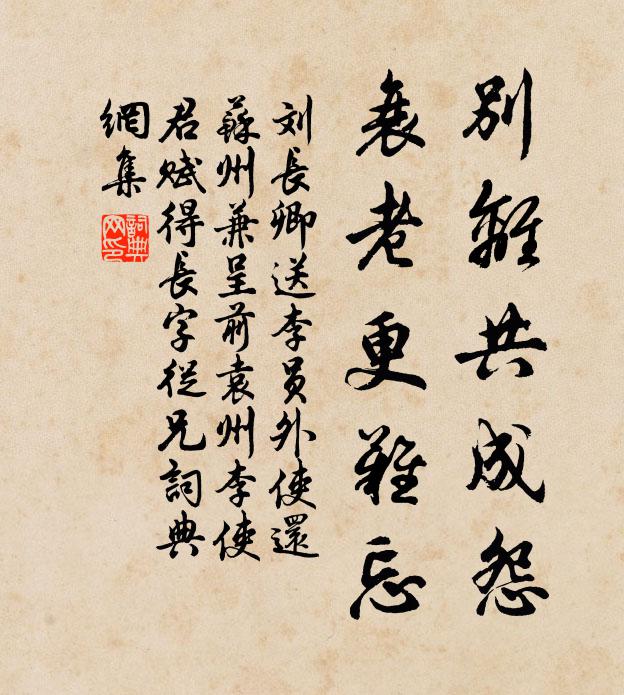 別離共成怨
衰老更難忘
刘長卿送李員外使還
蘇州兼呈前袁州李使
君賦得長字從兄詞典
網集
詞典网印